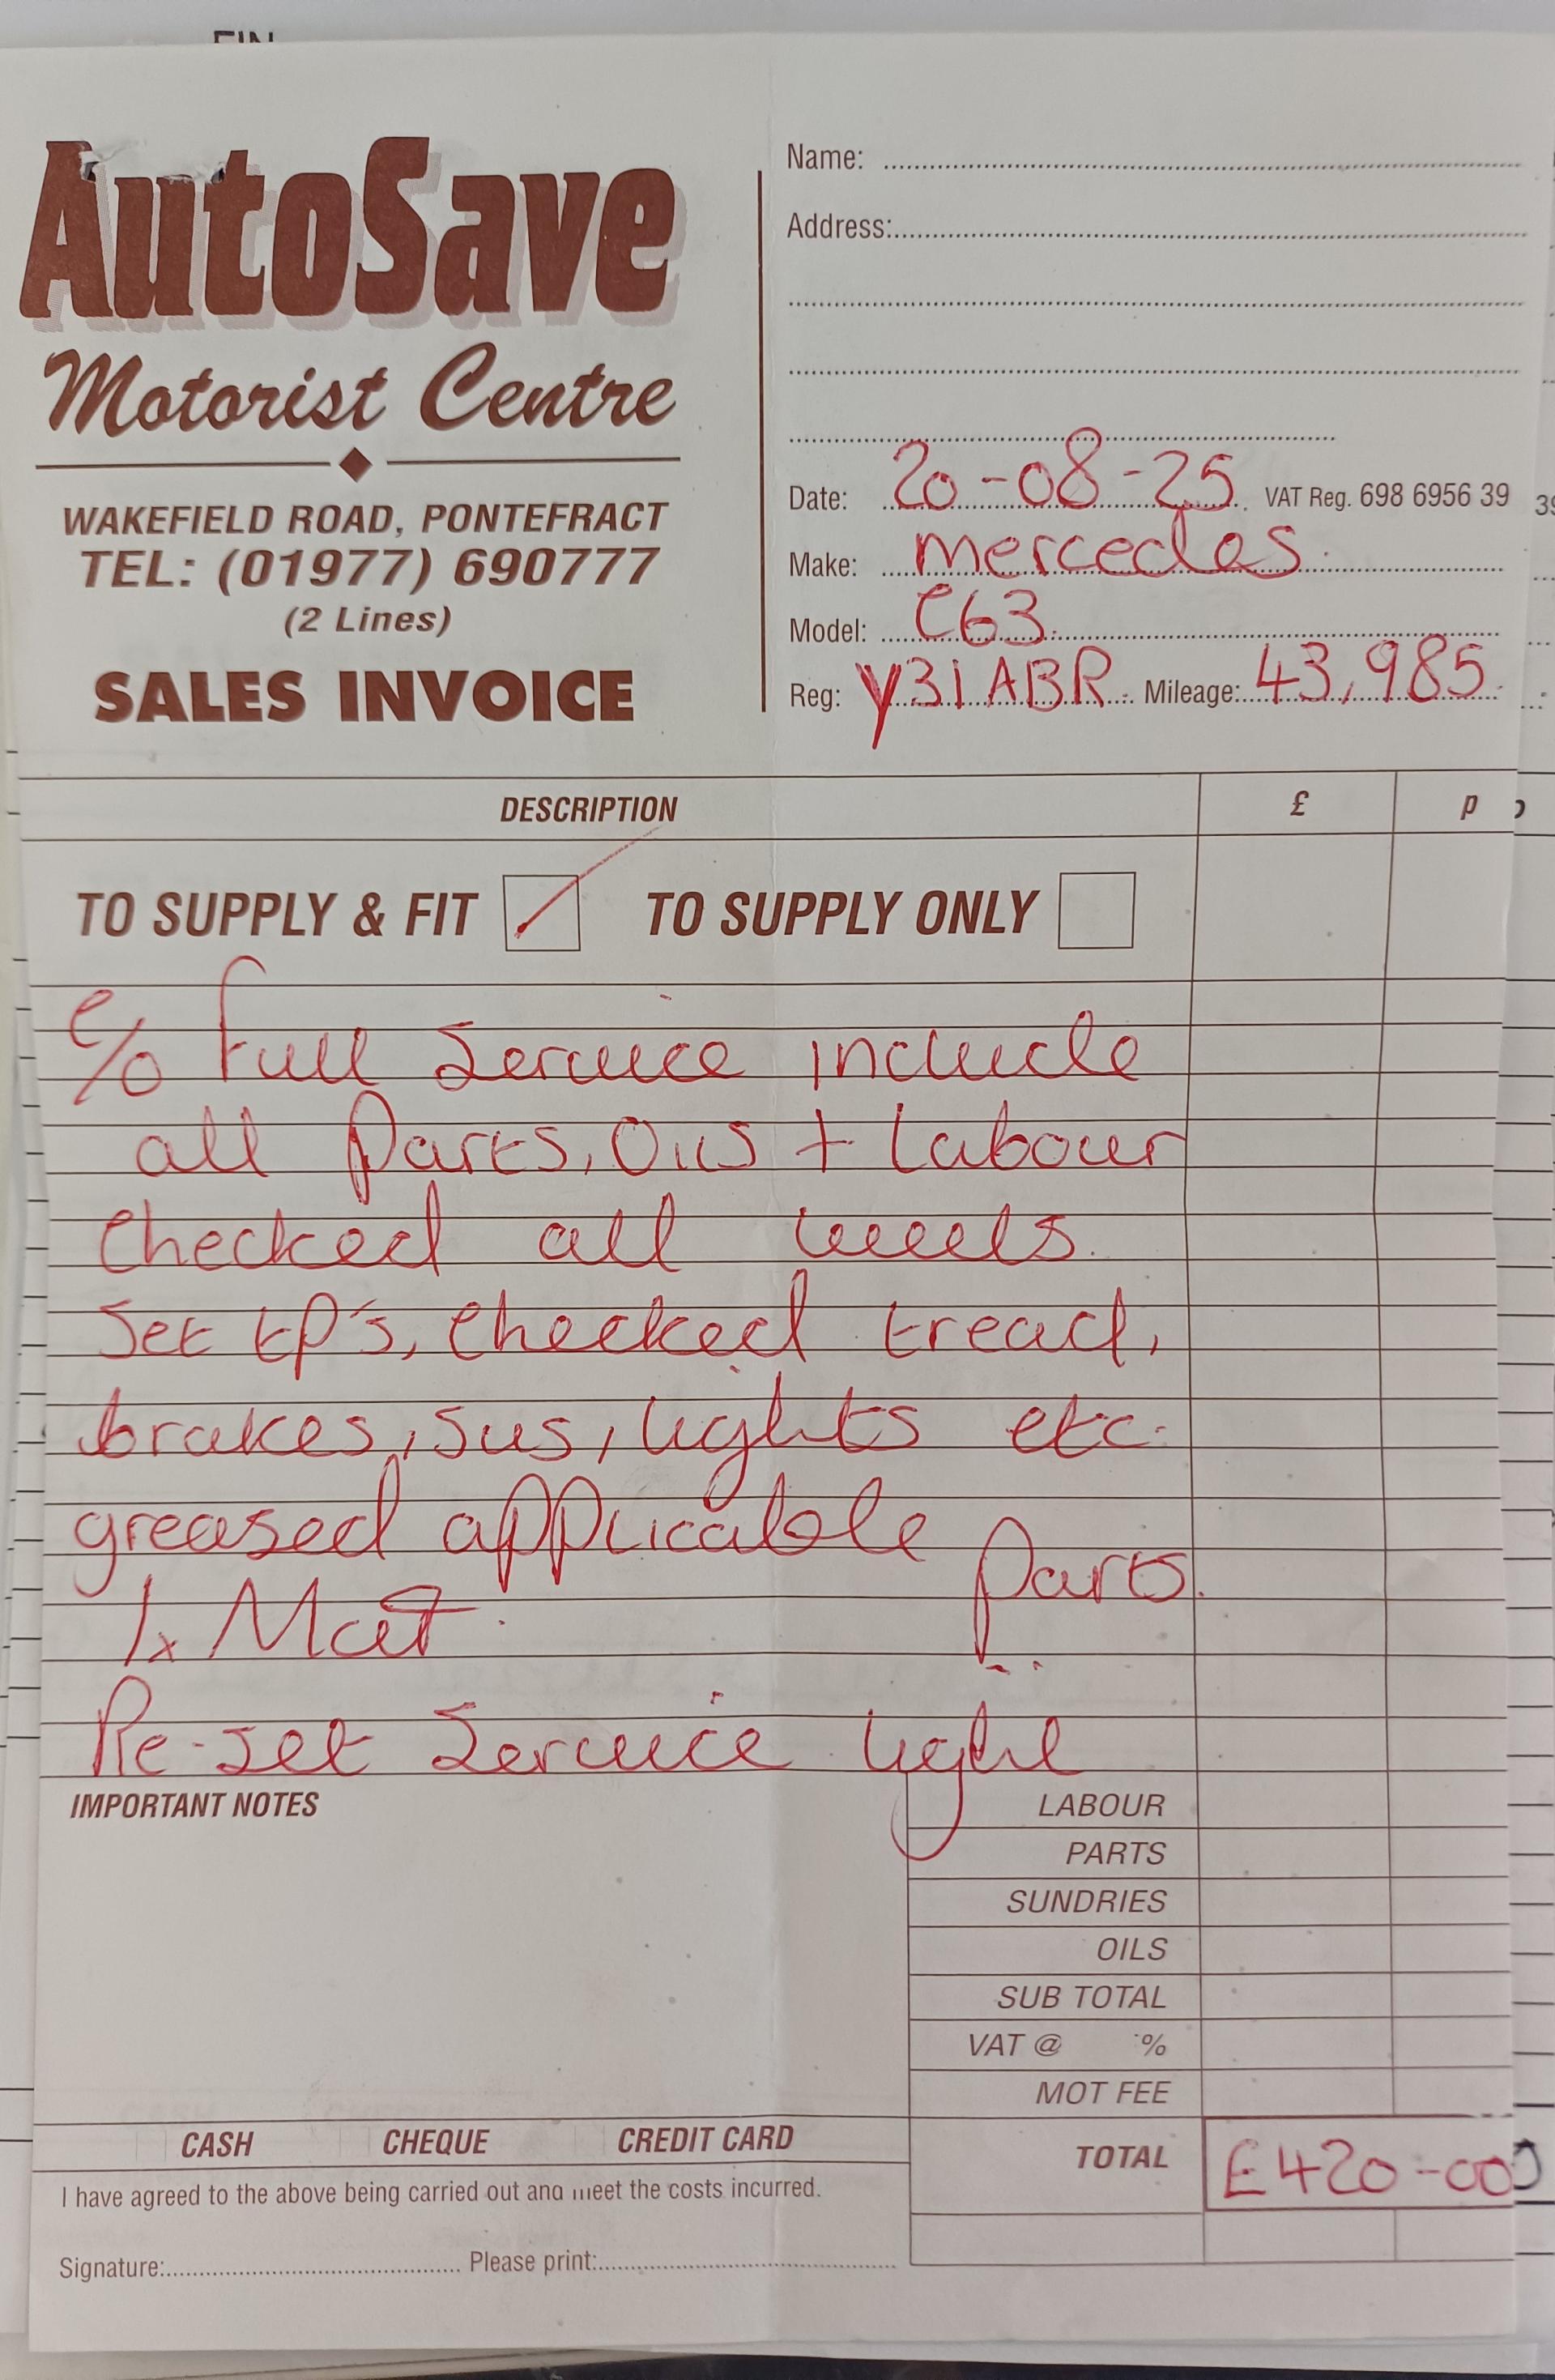 AutoSave
Motorist Centre
WAKEFIELD ROAD, PONTEFRACT
TEL: (01977) 690777
(2 Lines)
SALES INVOICE
Name:
Address:
Date: 20-08-25 VAT Reg. 698 6956 39
Make: Mercedes
Model: C63
Reg: Y31ABR Mileage: 43,985
DESCRIPTION £ p
TO SUPPLY & FIT TO SUPPLY ONLY
C/O Full Service include
all Parts, Oils + Labour
Checked all levels.
Set tP's, Checked tread,
brakes, sus, lights etc.
greased applicable parts.
1x Mot
Re-set Service light
IMPORTANT NOTES
LABOUR
PARTS
SUNDRIES
OILS
SUB TOTAL
VAT @ %
MOT FEE
TOTAL £420-00
CASH CHEQUE CREDIT CARD
I have agreed to the above being carried out and meet the costs incurred.
Signature: Please print: